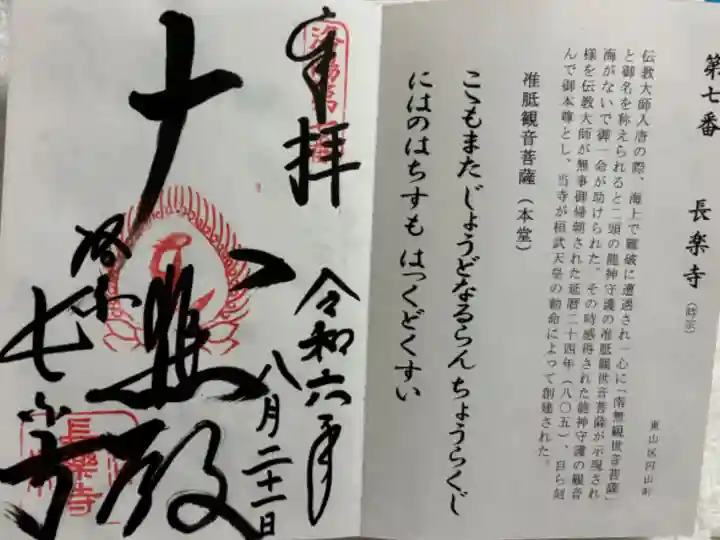 第七番 長楽寺 (時宗)
東山区円山町
伝教大師入唐の際、海上で難破に遭遇され一心に「南無観世音菩薩」
と御名を称えられると二頭の龍神守護の准胝観世音菩薩が示現され
海がないで御一命が助けられた。その時感得された龍神守護の観音
様を伝教大師が無事御帰朝された延暦二十四年(八〇五)、自ら刻
んで御本尊とし、当寺が桓武天皇の勅命によって創建された。
准胝観音菩薩(本堂)
こゝもまた じょうどなるらん ちょうらくじ
にはのはちすも はっくどくすい
奉拝
令和六年
八月二十一日
大悲殿
洛陽
長楽寺